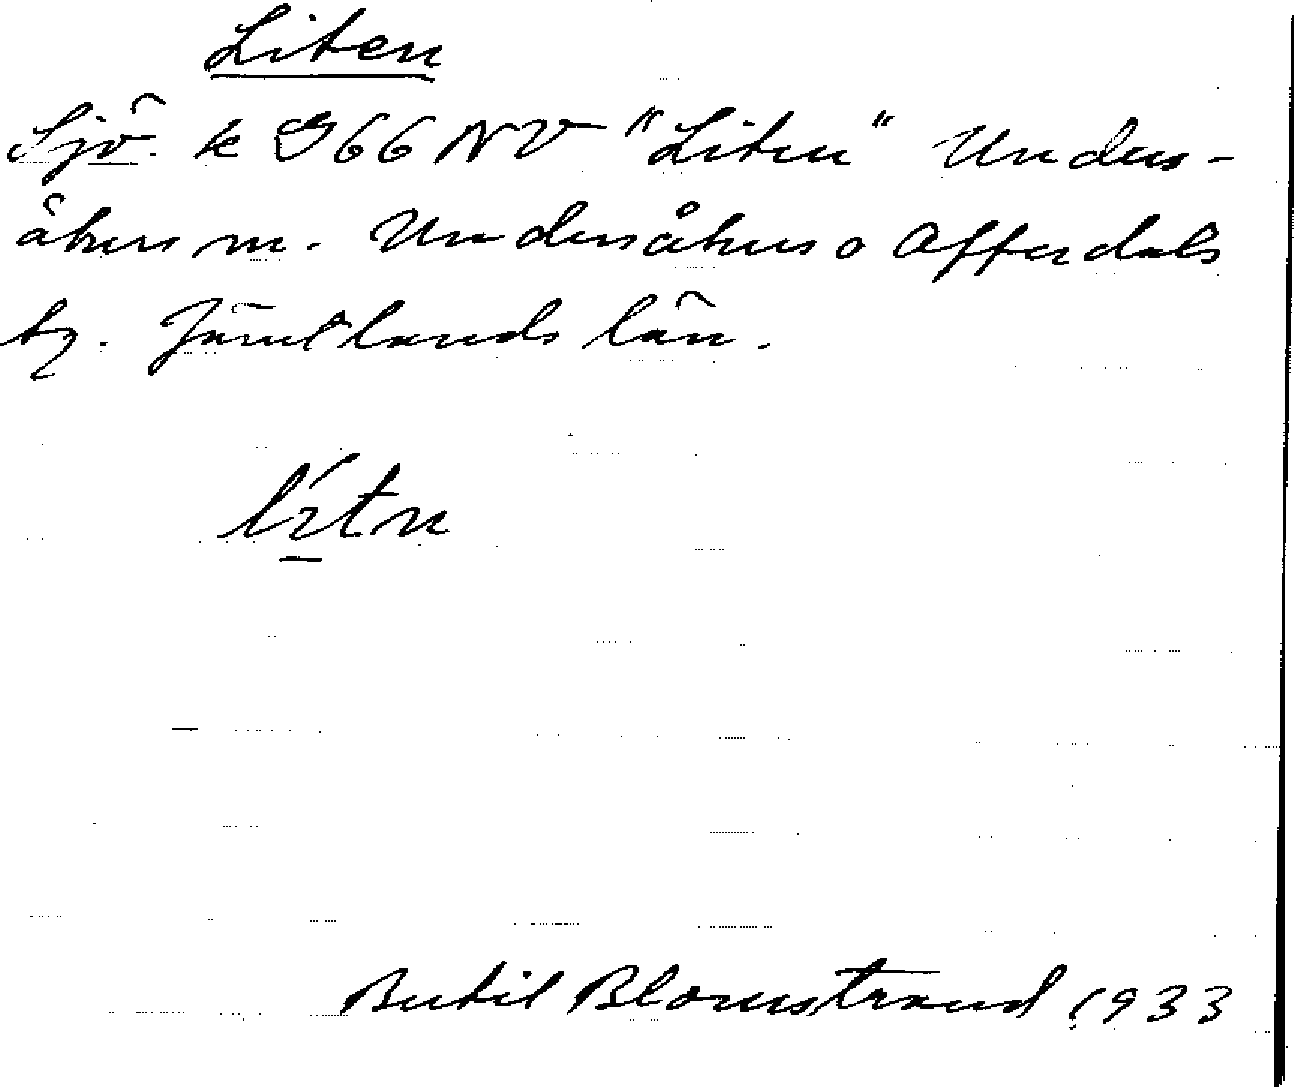 Liten
Sjö. k G66 NV "Liten" Unders-
åkers m. Undersåkers o Offerdals
tg. Jämtlands län.
lítn
Bertil Blomstrand 1933